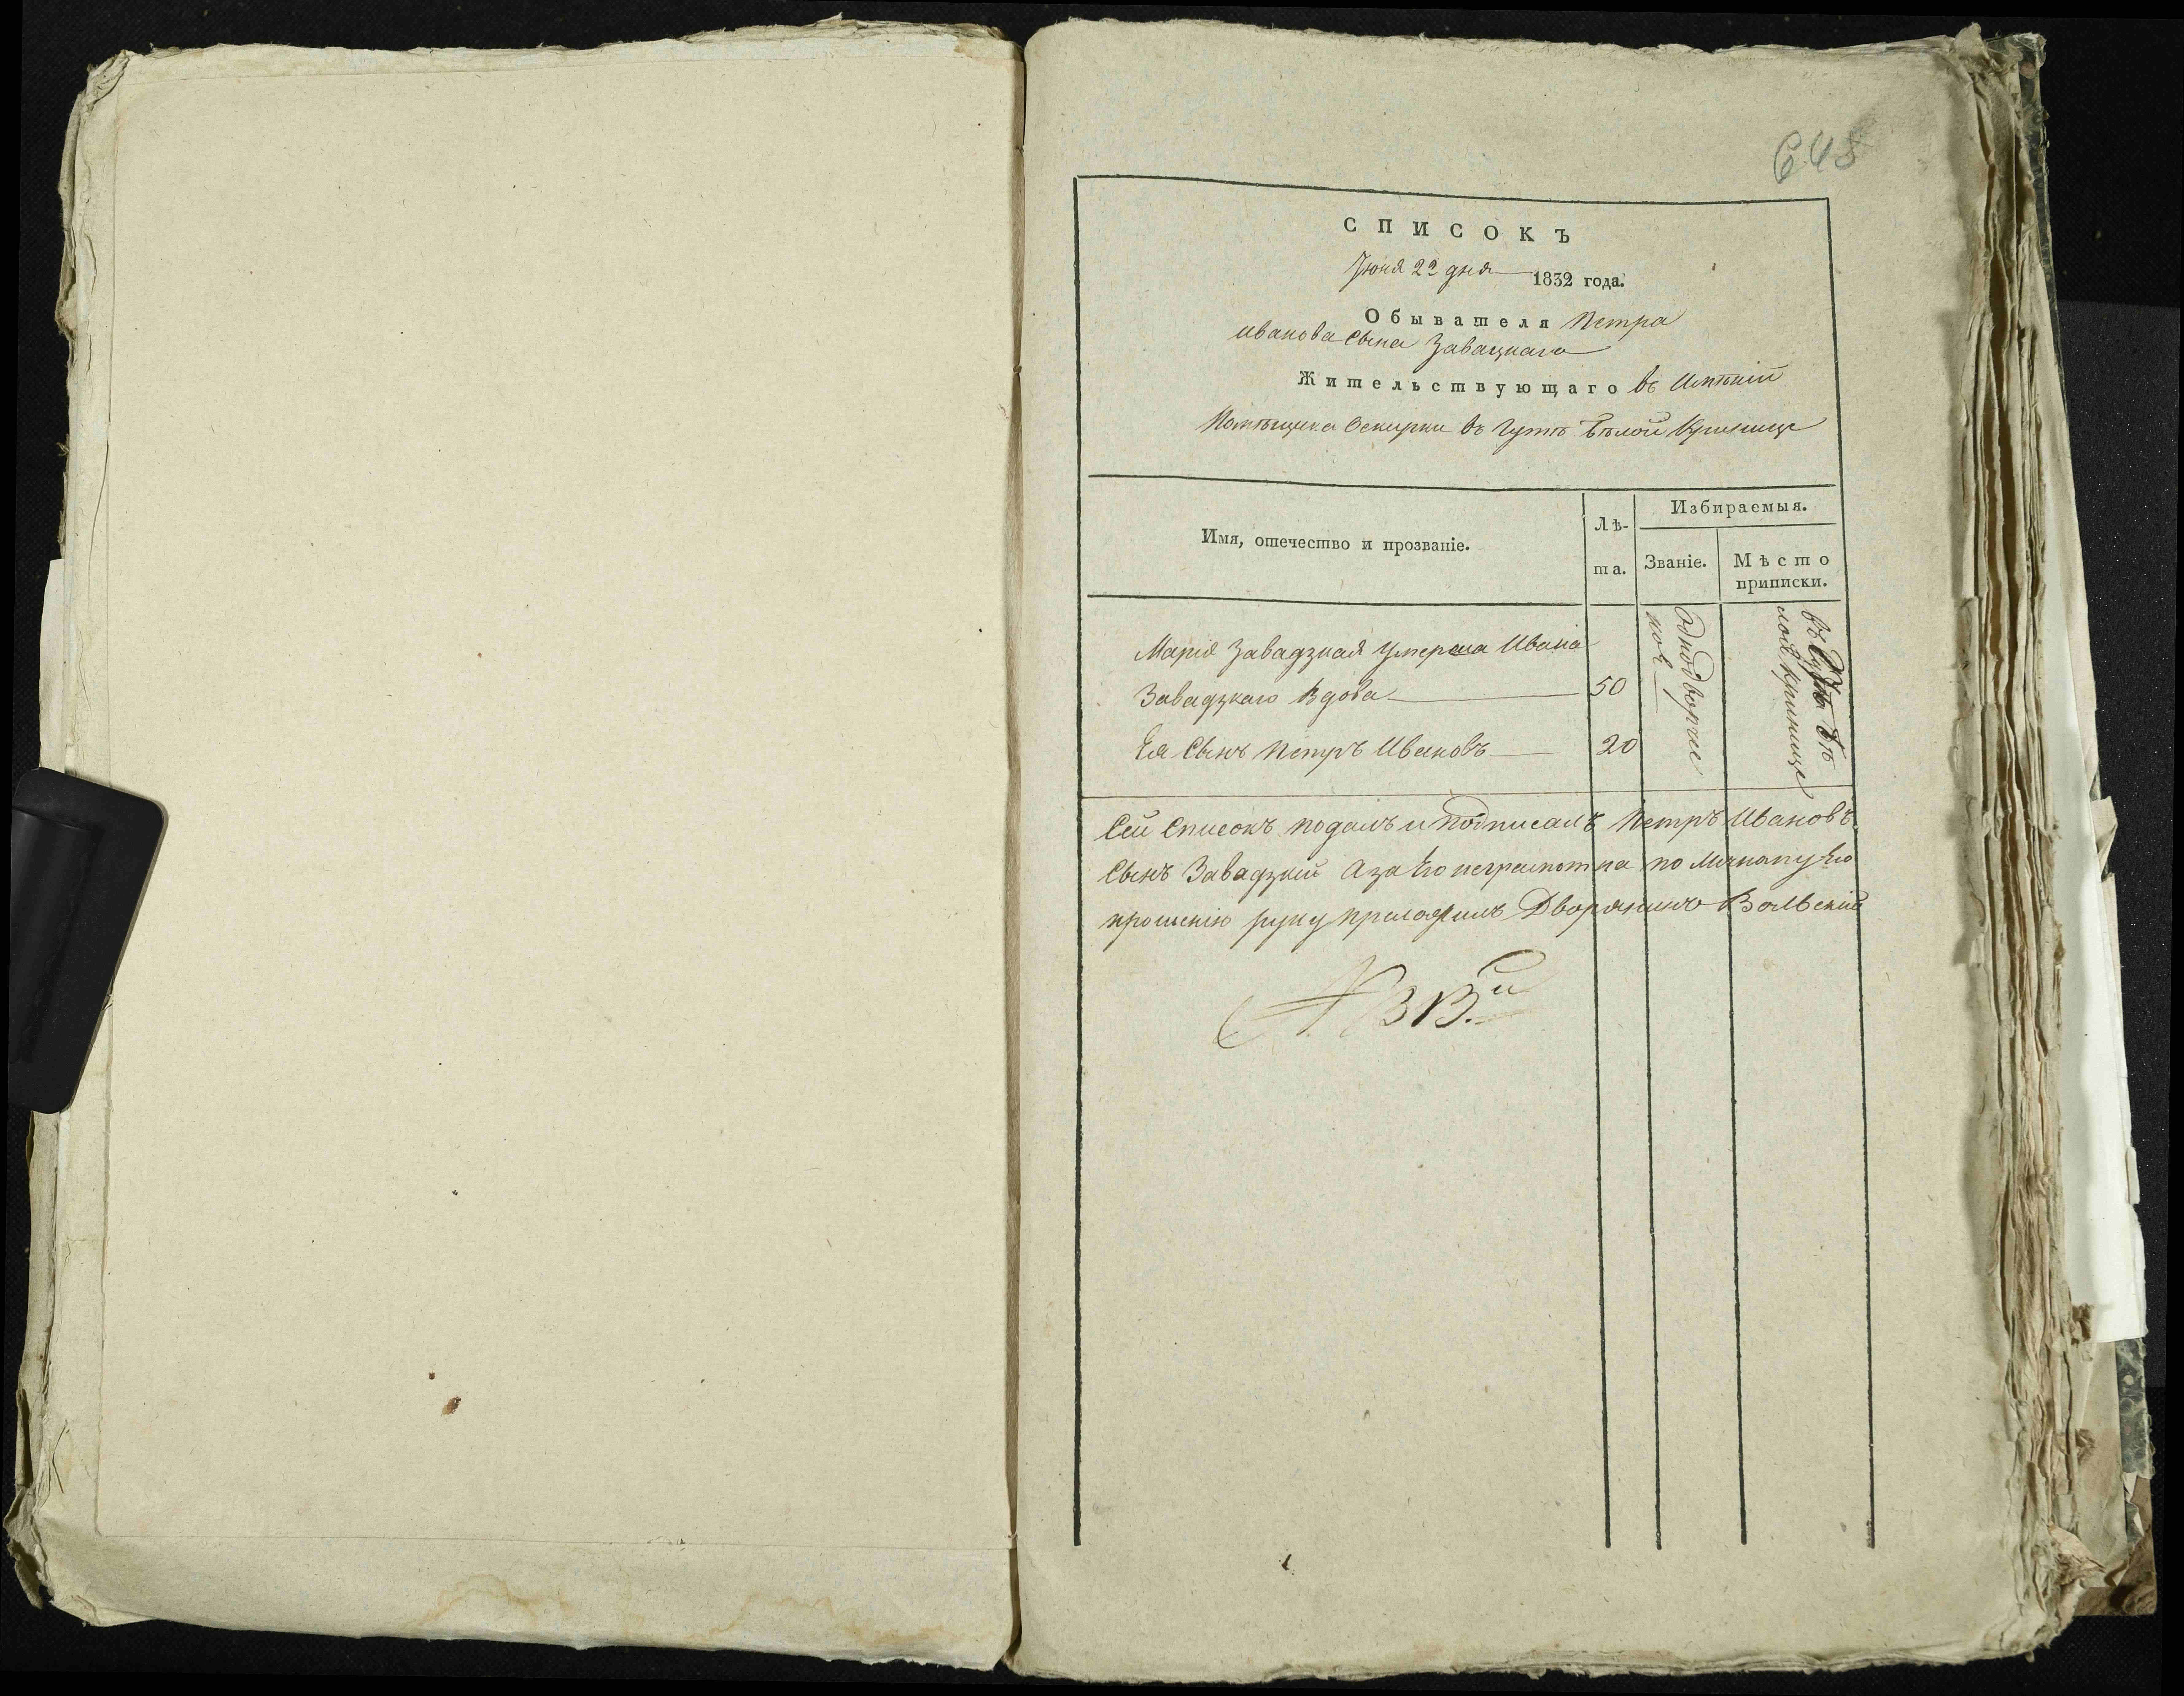 648
СПИСОКЪ
Іюня 22 дня 1832 года.
Обывателя Петра
иванова Сына Завацкаго
Жительствующаго въ Имѣніи
Помѣщика Оскирки въ Гутѣ Бѣлой Кринице
Имя, отечество и прозваніе.
Лѣ-
та.
Избираемыя.
Званіе.
Мѣсто
приписки.
Марія Завадзкая умерша Ивана
Завадзкаго Вдова 50
Ея Сынъ Петръ Ивановъ 20
Однодворчес
кое
въ Гутѣ Бѣ
лой Кринице
Сей Списокъ подалъ и подписалъ Петръ Ивановъ
Сынъ Завадзкій А за Его неграмотна по личному Его
прошенію руку приложилъ Дворянинъ Вольскій